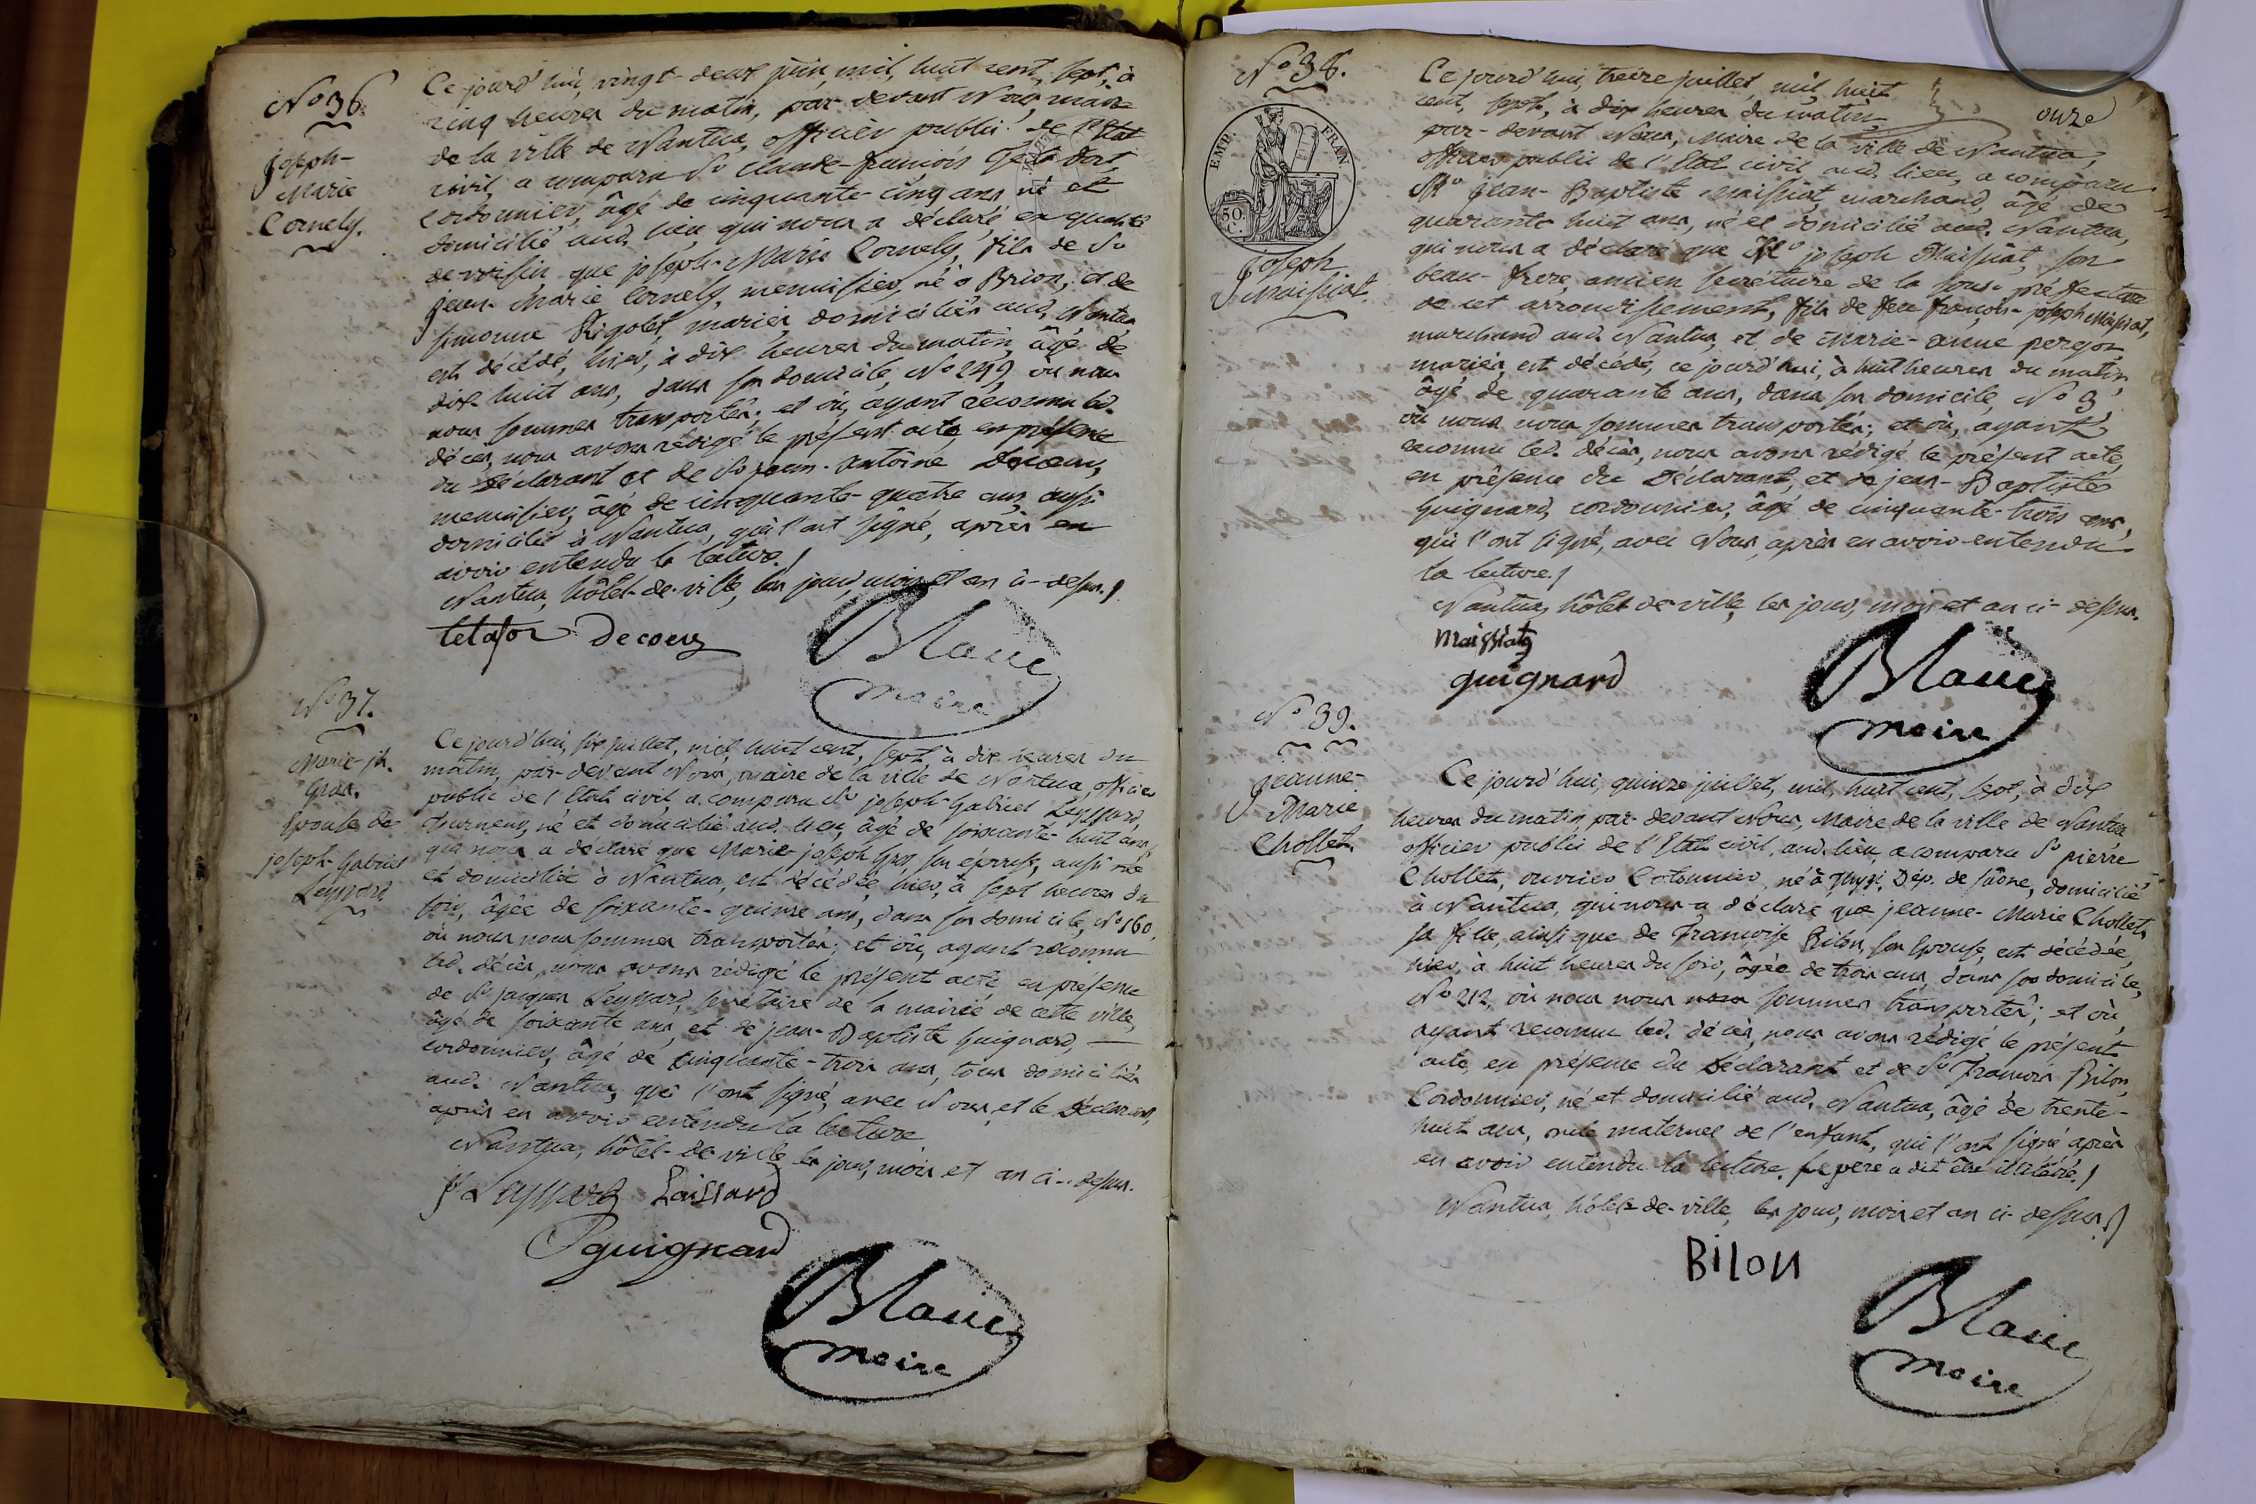 No 36.
Joseph-
Marie
Cornely.
Ce jourd'hui, vingt-deux juin, mil, huit cent, sept, à
cinq heures du matin, par-devant Nous, maire
de la ville de Nantua, officier public de l'Etat
civil, a comparu Sr Claude-françois
Cordonnier, âgé de cinquante-cinq ans né et
domicilié aud. lieu, qui nous a déclaré en qualité
de voisin que joseph-Marie Cornely, fils de Sr
jean-Marie Cornely, menuisier, né à Brion, et de
simonne Rigolet, mariés, domiciliés aud. Nantua
est décédé, hier, à dix heures du matin, âgé de
dix-huit ans, dans son domicile, No 249, où nous
nous sommes transportés; et où, ayant reconnu led.
décès, nous avons rédigé le présent acte en présence
du Déclarant et de Sr jean-Antoine Decoeur,
menuisier, âgé de cinquante-quatre ans, aussi
domicilié à Nantua, qui l'ont signé, après en
avoir entendu la lecture./
Nantua, hôtel-de-ville, les jour, mois et an ci-dessus./
letafor Decoeur
Blanc
maire
No 37.
Marie-jh.
Gros.
Epouse de
joseph-Gabriel
Leyssard
Ce jourd'hui, six juillet, mil, huit cent, sept, à dix heures du
matin, par-devant Nous, maire de la ville de Nantua, officier
public de l'Etat civil, a comparu Sr joseph-Gabriel Leyssard,
tourneur, né et domicilié aud. lieu, âgé de soixante-huit ans,
qui nous a déclaré que Marie-joseph Gros, son épouse, aussi née
et domiciliée à Nantua, est décédée, hier, à sept heures du
soir, âgée de soixante-quinze ans, dans son domicile, No 160,
où nous nous sommes transportés; et où, ayant reconnu
led. décès, nous avons rédigé le présent acte en présence
de Sr jacques Leyssard, secrétaire de la mairie de cette ville,
âgé de soixante ans, et de jean-Baptiste Guignard,
cordonnier, âgé de cinquante-trois ans, tous domiciliés
aud. Nantua, qui l'ont signé, avec Nous, et le Déclarant,
après en avoir entendu la lecture
Nantua, hôtel-de-ville les jour, mois et an ci-dessus.
jh Leyssard Laissard
guignard
Blanc
maire
No 38.
EMP. FRAN
50.
C.
Joseph
Maissiat
onze
Ce jourd'hui, treize juillet, mil, huit
cent, sept, à dix heures du matin,
par-devant Nous, Maire de la ville de Nantua,
officier public de l'Etat civil, aud. lieu, a comparu
Mr jean-Baptiste Maissiat, marchand, âgé de
quarante-huit ans, né et domicilié aud. Nantua,
qui nous a déclaré que Mr joseph Maissiat, son
beau-frere, ancien secrétaire de la sous-préfecture
de cet arrondissement, fils de feu françois-joseph Maissiat,
marchand aud. Nantua, et de Marie-anne
mariés, est décédé, ce jourd'hui, à huit heures du matin,
âgé de quarante ans, dans son domicile, No 3,
où nous nous sommes transportés; et où, ayant
reconnu led. décès, nous avons rédigé le présent acte,
en présence du Déclarant, et de jean-Baptiste
Guignard, cordonnier, âgé de cinquante-trois ans,
qui l'ont signé, avec Nous, après en avoir entendu
la lecture./
Nantua, hôtel de ville, les jour, mois et an ci-dessus.
Maissiat
guignard
Blanc
maire
No 39.
Jeanne-
Marie
Chollet.
Ce jourd'hui, quinze juillet, mil, huit cent, sept, à dix
heures du matin, par-devant Nous, Maire de la ville de Nantua
officier public de l'Etat civil, aud. lieu, a comparu Sr pierre
Chollet, ouvrier Cotonnier, né à Thyzi, Dép. de Saône, domicilié
à Nantua, qui nous a déclaré que jeanne-Marie Chollet,
sa fille, ainsi que de Françoise Bilon, son Epouse, est décédée,
hier, à huit heures du soir, âgée de trois ans, dans son domicile,
No 212, où nous nous nous sommes transportés; et où,
ayant reconnu led. décès, nous avons rédigé le présent
acte, en présence du Déclarant et de Sr François Bilon,
Cordonnier, né et domicilié aud. Nantua, âgé de trente-
huit ans, oncle maternel de l'enfant, qui l'ont signé après
en avoir entendu la lecture. Le pere a dit être illitéré./
Nantua, hôtel-de-ville, les jour, mois et an ci-dessus./
BiLON
Blanc
maire